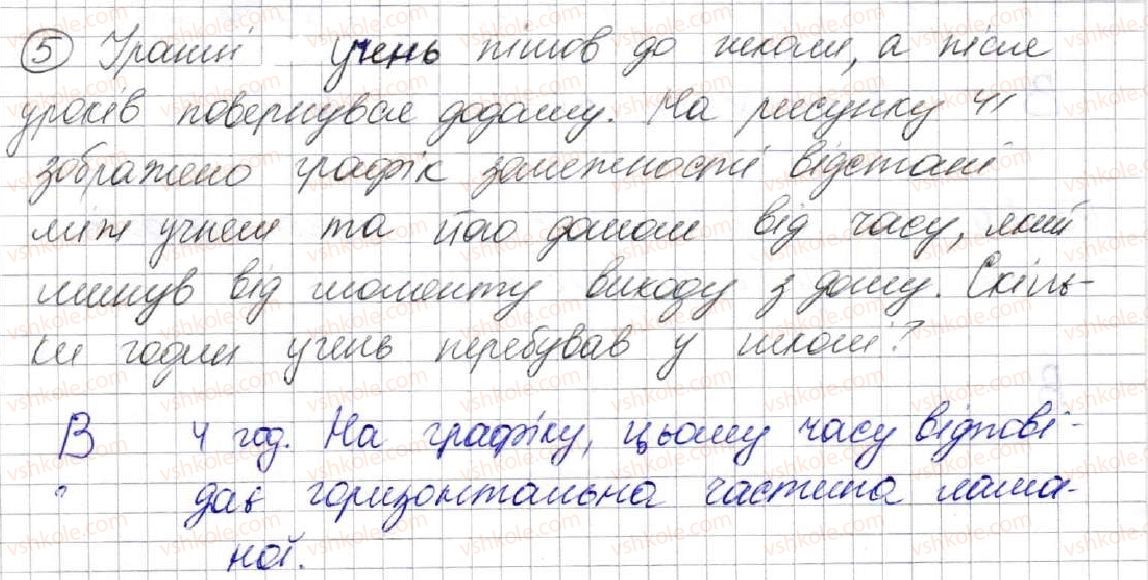 5 Уранці учень пішов до школи, а після
уроків повернувся додому. На рисунку 41
зображено графік залежності відстані
між учнем та його домом від часу, який
минув від моменту виходу з дому. Скіль-
ки годин учень перебував у школі?
В 4 год. На графіку, цьому часу відпові-
дає горизонтальна частина лама-
ної.